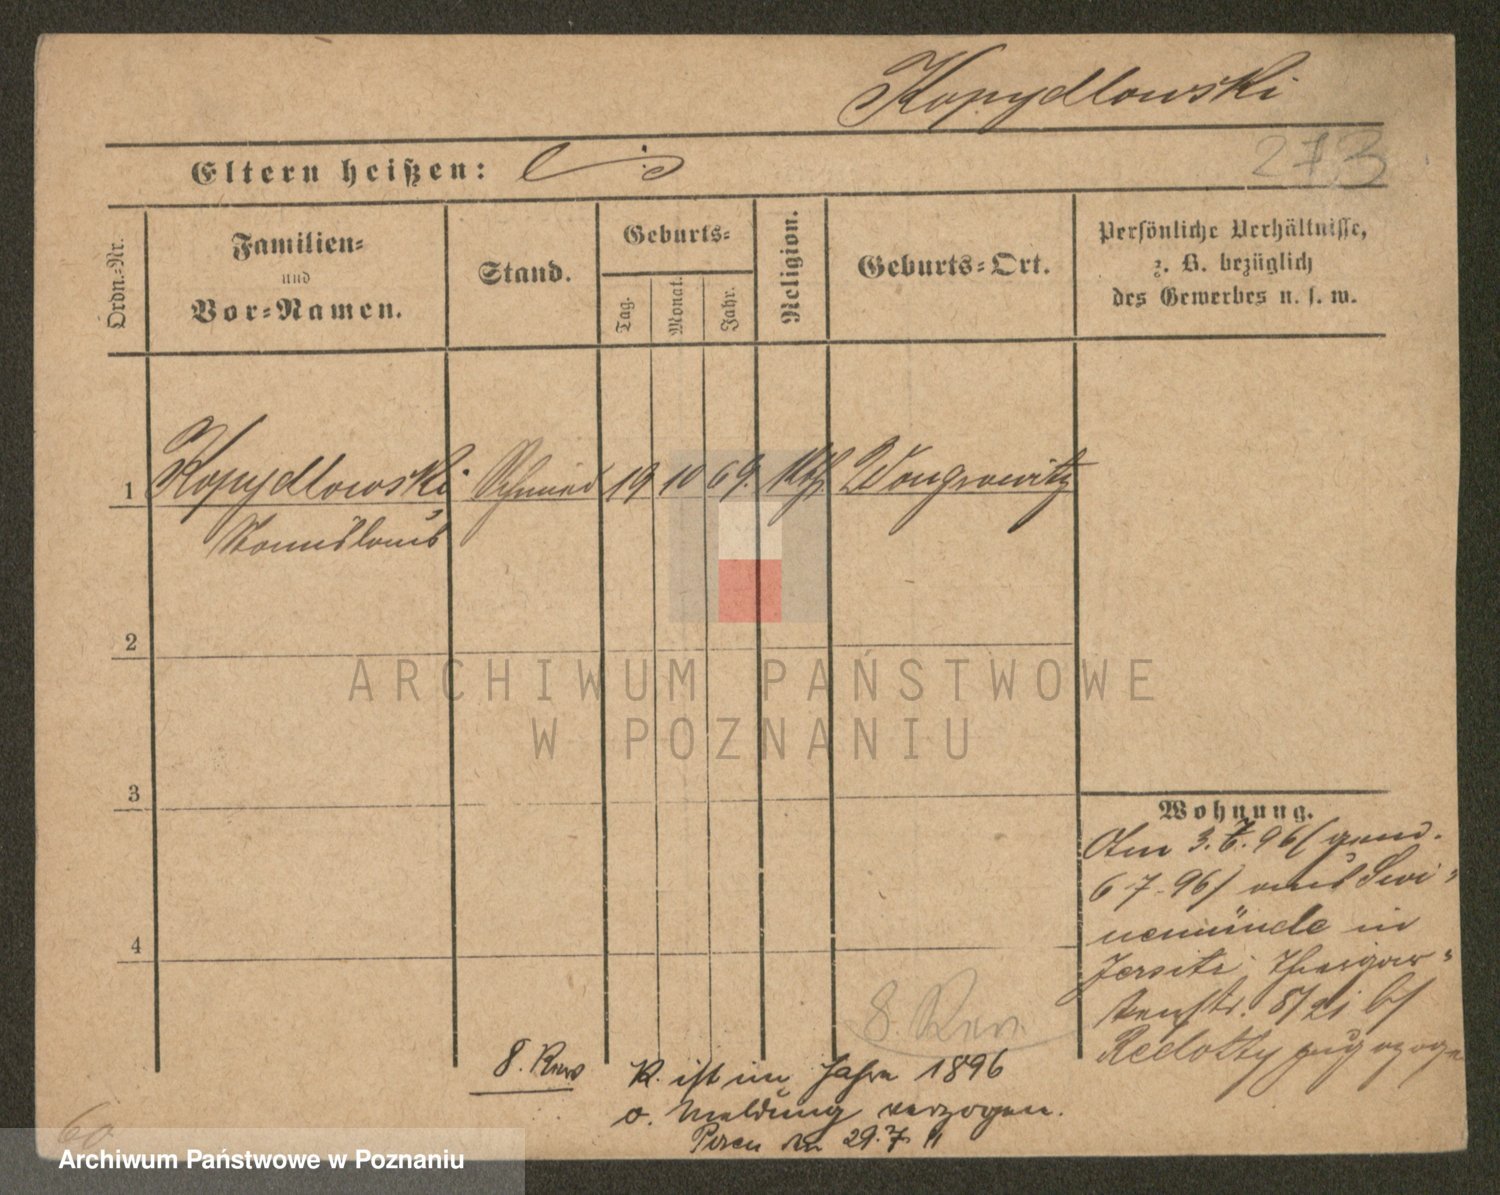 Kopydlowski
273
Eltern heißen:
Ordn.=Nr.
Familien=
und
Vor=Namen.
Stand.
Geburts=
Tag.
Monat.
Jahr.
Religion.
Geburts=Ort.
Persönliche Verhältnisse,
z. B. bezüglich
des Gewerbes u. s. w.
1 Kopydlowski Schmied 19 10 69. Kth. Wongrowitz
Stanislaus
2
ARCHIWUM PAŃSTWOWE
W POZNANIU
3
4
Wohnung.
Am 3.7.96/ gem.
6.7.96/ aus Swi=
nemünde in
Jersitz, Thiergar=
tenstr. 8/ bei
Redotty zugezogen
8. Rev.
8. Rev
K. ist im Jahre 1896
o. Meldung verzogen.
Posen den 29.7. 11
60
Archiwum Państwowe w Poznaniu